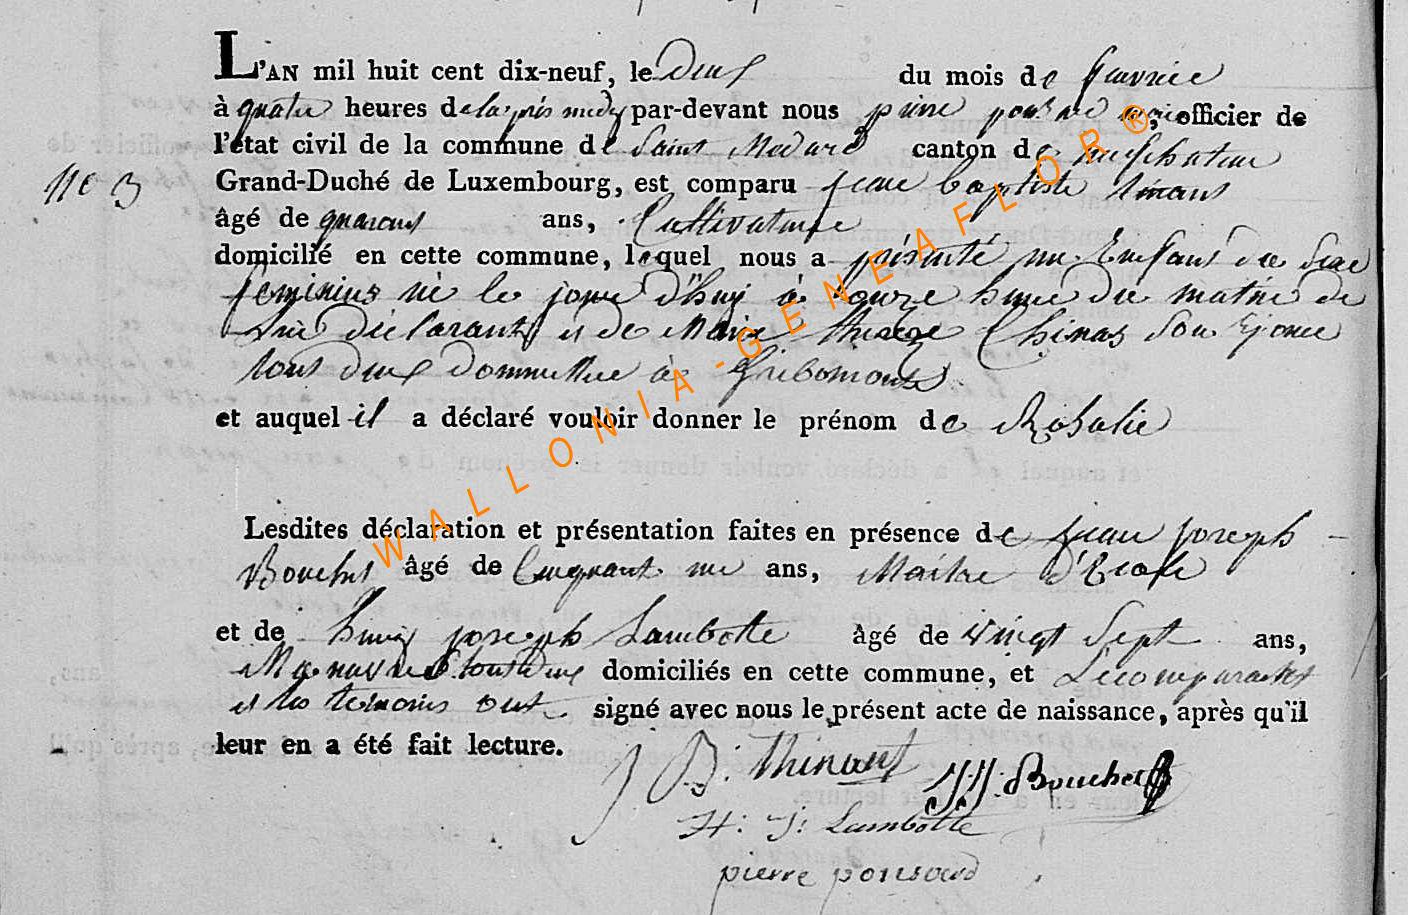 L'AN mil huit cent dix-neuf, le deux du mois de fevrier
à quatre heures de lapris midy par-devant nous pierre ponsard maire, officier de
l'état civil de la commune de Saint Medard canton de neufchateau
N° 3
Grand-Duché de Luxembourg, est comparu jean baptiste tinant
âgé de quarant ans, Cultivateur
domicilié en cette commune, lequel nous a présenté un Enfant de sexe
feminins né le jour d'huy à onze heure du matin de
lui déclarant et de Marie therese Chinas son Epouse
tout deux à Gribomont
et auquel il a déclaré vouloir donner le prénom de Rosalie
Lesdites déclaration et présentation faites en présence de jean joseph
Bouchet âgé de Cinquant un ans, Maitre d'Ecole
et de henry joseph Lambotte âgé de vingt Sept ans,
Manuvre tout deux domiciliés en cette commune, et Le comparant
et les temoins ont signé avec nous le présent acte de naissance, après qu'il
leur en a été fait lecture.
J B: thinant J.J. Bouchet
H: J: Lambotte
pierre ponsard
WALLONIA-GENEAFLOR®